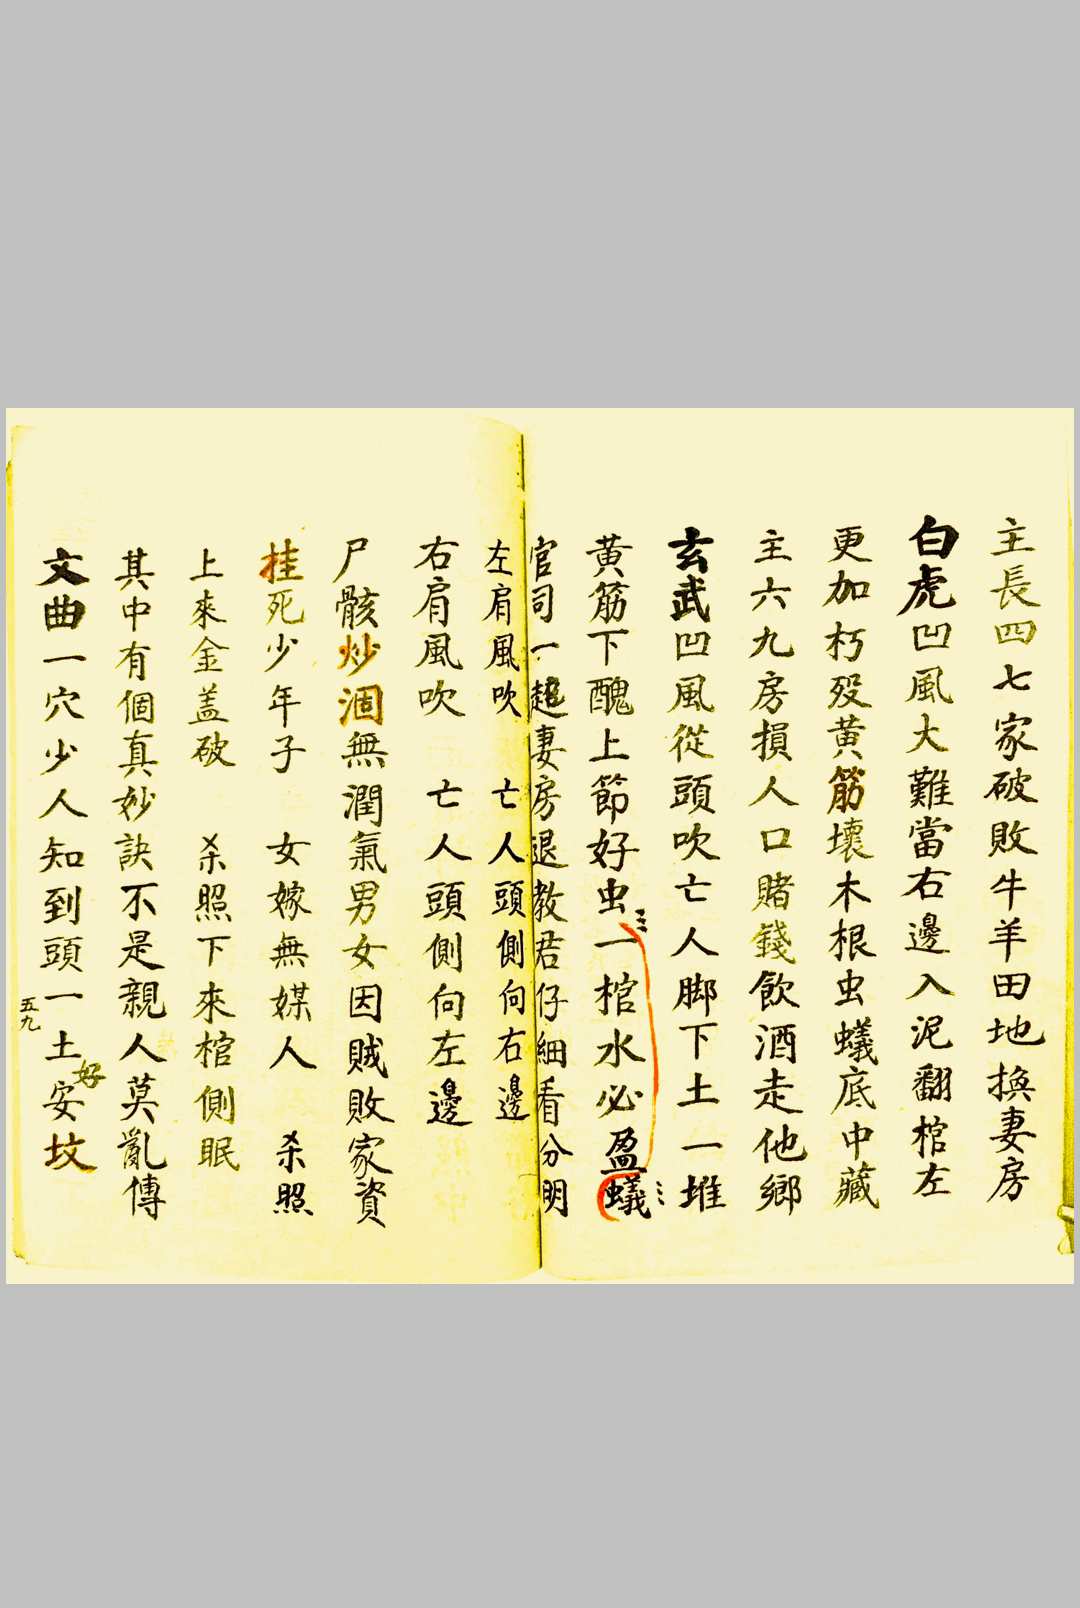 主長四七家破敗牛羊田地換妻房
白虎凹風大難當右邊入泥翻棺左
更加朽殁黄筋壞木根虫蟻底中藏
主六九房損人口賭錢飲酒走他鄉
玄武凹風從頭吹亡人脚下土一堆
黄筋下醜上節好虫一棺水必盈蟻
官司一起妻房退教君仔細看分明
左肩風吹 亡人頭側向右邊
右肩風吹 亡人頭側向左邊
尸骸炒涸無潤氣男女因賊敗家資
桂死少年子 女嫁無媒人 杀照
上來金盖破 杀照下來棺側眠
其中有個真妙訣不是親人莫亂傳
文曲一穴少人知到頭一土安坟
好
五九